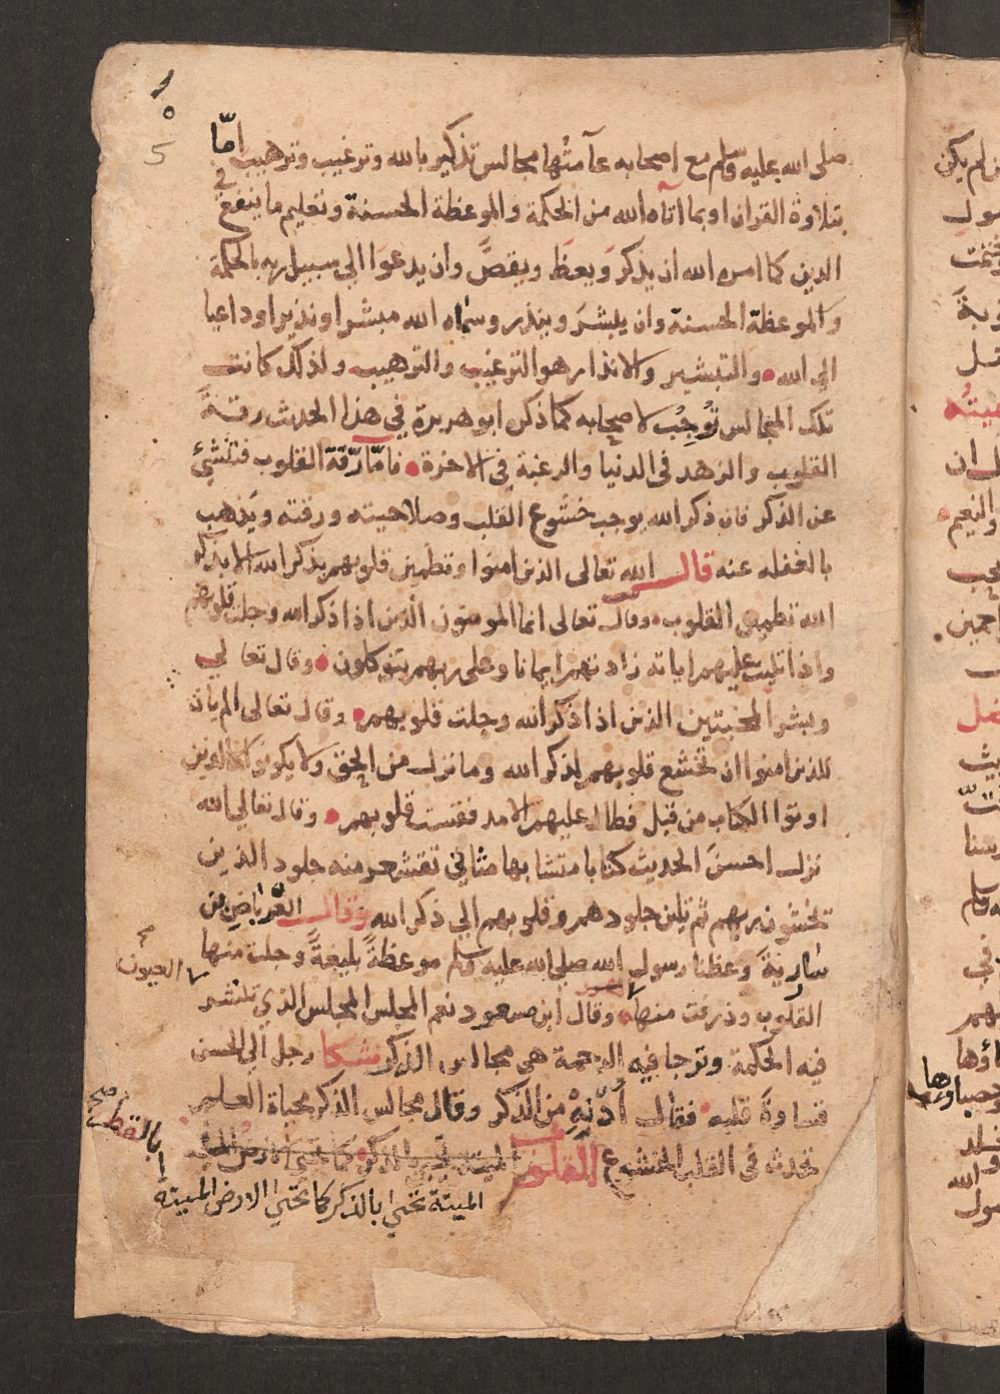 صلى الله عليه وسلم مع اصحابه عآمتها مجالس تذكير بالله وترغيب وترهيب امّا
بتلاوة القران او بما اتاه الله من الحكمة والموعظة الحسنة وتعليم ما ينفع في
الدين كما امره الله ان يذكر ويعظ ويقص وان يدعوا الى سبيل ربه بالحكمة
والموعظة الحسنة وان يبشر وينذر وسماه الله مبشرا ونذيرا وداعيا
الى الله والتبشير والانذار هو الترغيب والترهيب ولذلك كانت
تلك المجالس توجب لاصحابه كما ذكره ابو هريرة في هذا الحديث رقة
القلوب والزهد في الدنيا والرغبة في الاخرة فامّا رقة القلوب فتنشئ
عن الذكر فان ذكر الله يوجب خشوع القلب وصلاحيته ورقته ويذهب
بالغفله عنه قال الله تعالى الذين امنوا وتطمين قلوبهم بذكر الله الا بذكر
الله تطمين القلوب وقال تعالى انما المومنون الذين اذا ذكر الله وجلت قلوبهم
واذا تليت عليهم اياته زادتهم ايمانا وعلى ربهم يتوكلون وقال تعالى
وبشر المخبتين الذين اذا ذكر الله وجلت قلوبهم وقال تعالى الم يان
للذين امنوا ان تخشع قلوبهم لذكر الله وما نزل من الحق ولا يكونوا كالذين
اوتوا الكتاب من قبل فطال عليهم الامد فقست قلوبهم وقال تعالى الله
نزل احسن الحديث كتابا متشابها مثاني تقشعر منه جلود الذين
يخشون ربهم ثم تلين جلودهم وقلوبهم الى ذكر الله وقال العرباض بن
سارية وعظنا رسول الله صلى الله عليه وسلم موعظة بليغة وجلت منها
القلوب وذرفت منها وقال ابن مسعود نعم المجلس المجلس الذي تنشر
العيون
فيه الحكمة وترجا فيه الرحمة هي مجالس الذكر وشكا رجل الى الحسن
قساوة قلبه فقال أدنه من الذكر وقال مجالس الذكر محياة العلم
تحدث في القلب الخشوع القلوب
الميتة تحيى بالذكر كما تحيى الارض الميته
بالقطر صح
5